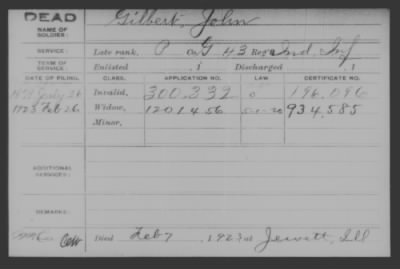 DEAD
NAME OF SOLDIER:
Gilbert, John
SERVICE:
Late rank, P Co G. 43 Reg't Ind. Inf
TERM OF SERVICE:
Enlisted , 1 Discharged , 1
DATE OF FILING. CLASS. APPLICATION NO. LAW CERTIFICATE NO.
July 26 Invalid, 300.332 196,096
1923 Feb 26. Widow, 1201456 934,585
Minor,
ADDITIONAL SERVICES:
REMARKS:
Died Feb 7, 1923 at Jewett, Ill